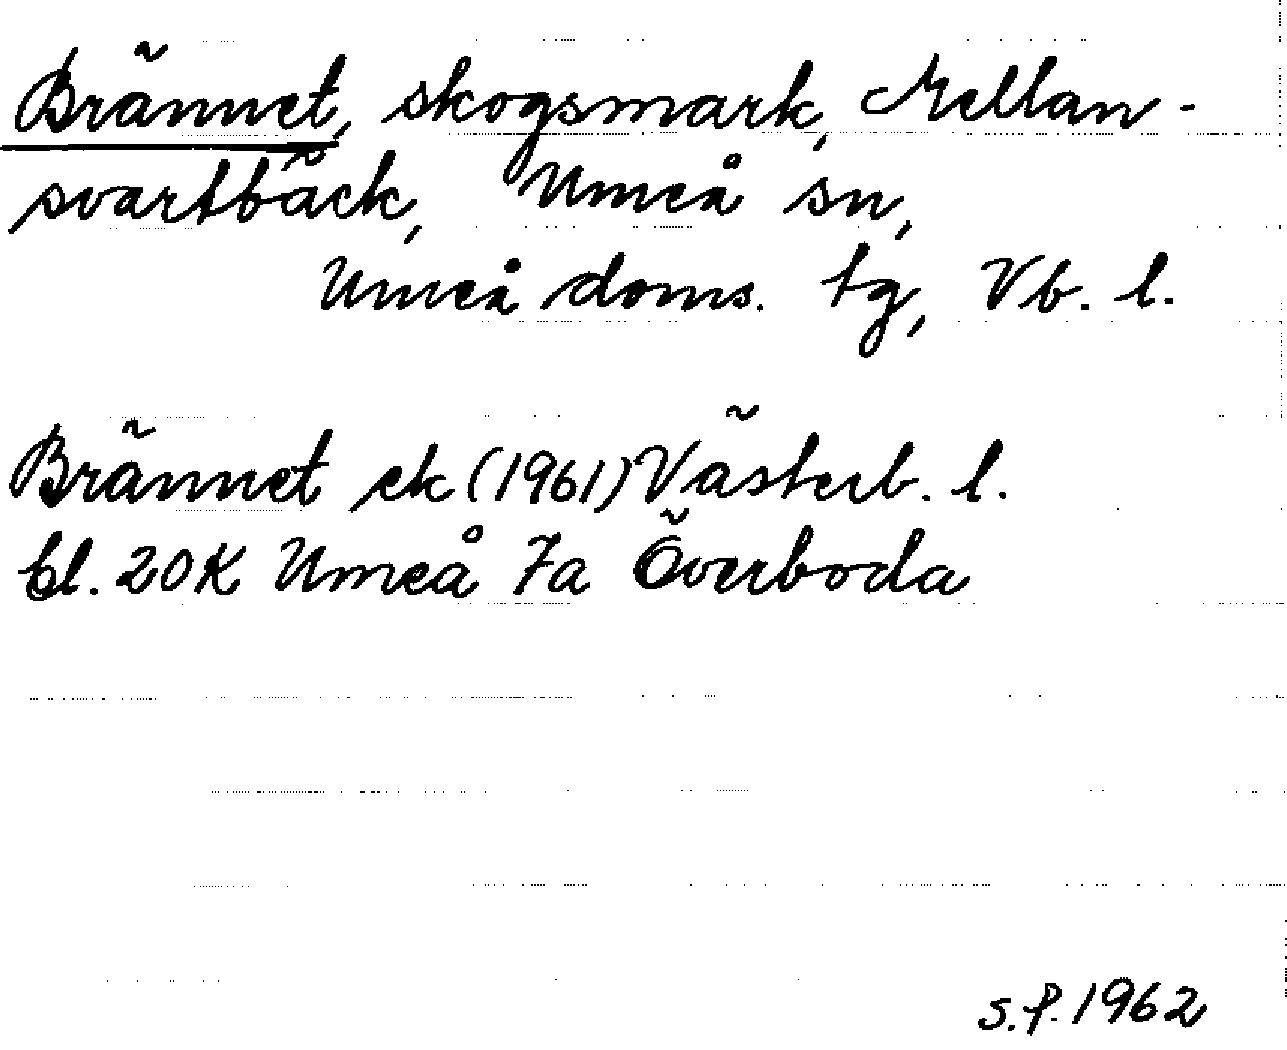 Brännet, skogsmark, Mellan-
svartbäck, Umeå sn,
Umeå doms. tg, Vb. l.
Brännet ek (1961) Västerb. l.
bl. 20K Umeå 7a Överboda
S.P. 1962